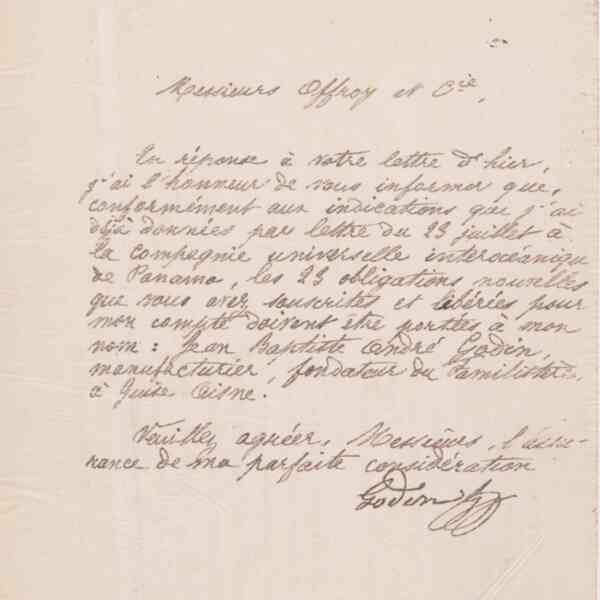 Messieurs Offroy et Cie,
En réponse à votre lettre d'hier,
j'ai l'honneur de vous informer que,
conformément aux indications que j'ai
déjà données par lettre du 23 juillet à
la compagnie universelle interocéanique
de Panama, les 23 obligations nouvelles
que vous avez souscrites et libérées pour
mon compte doivent être portées à mon
nom : Jean Baptiste André Godin,
manufacturier, fondateur du familistère,
à Guise Aisne.
Veuillez agréer, Messieurs, l'assu-
rance de ma parfaite considération
Godin